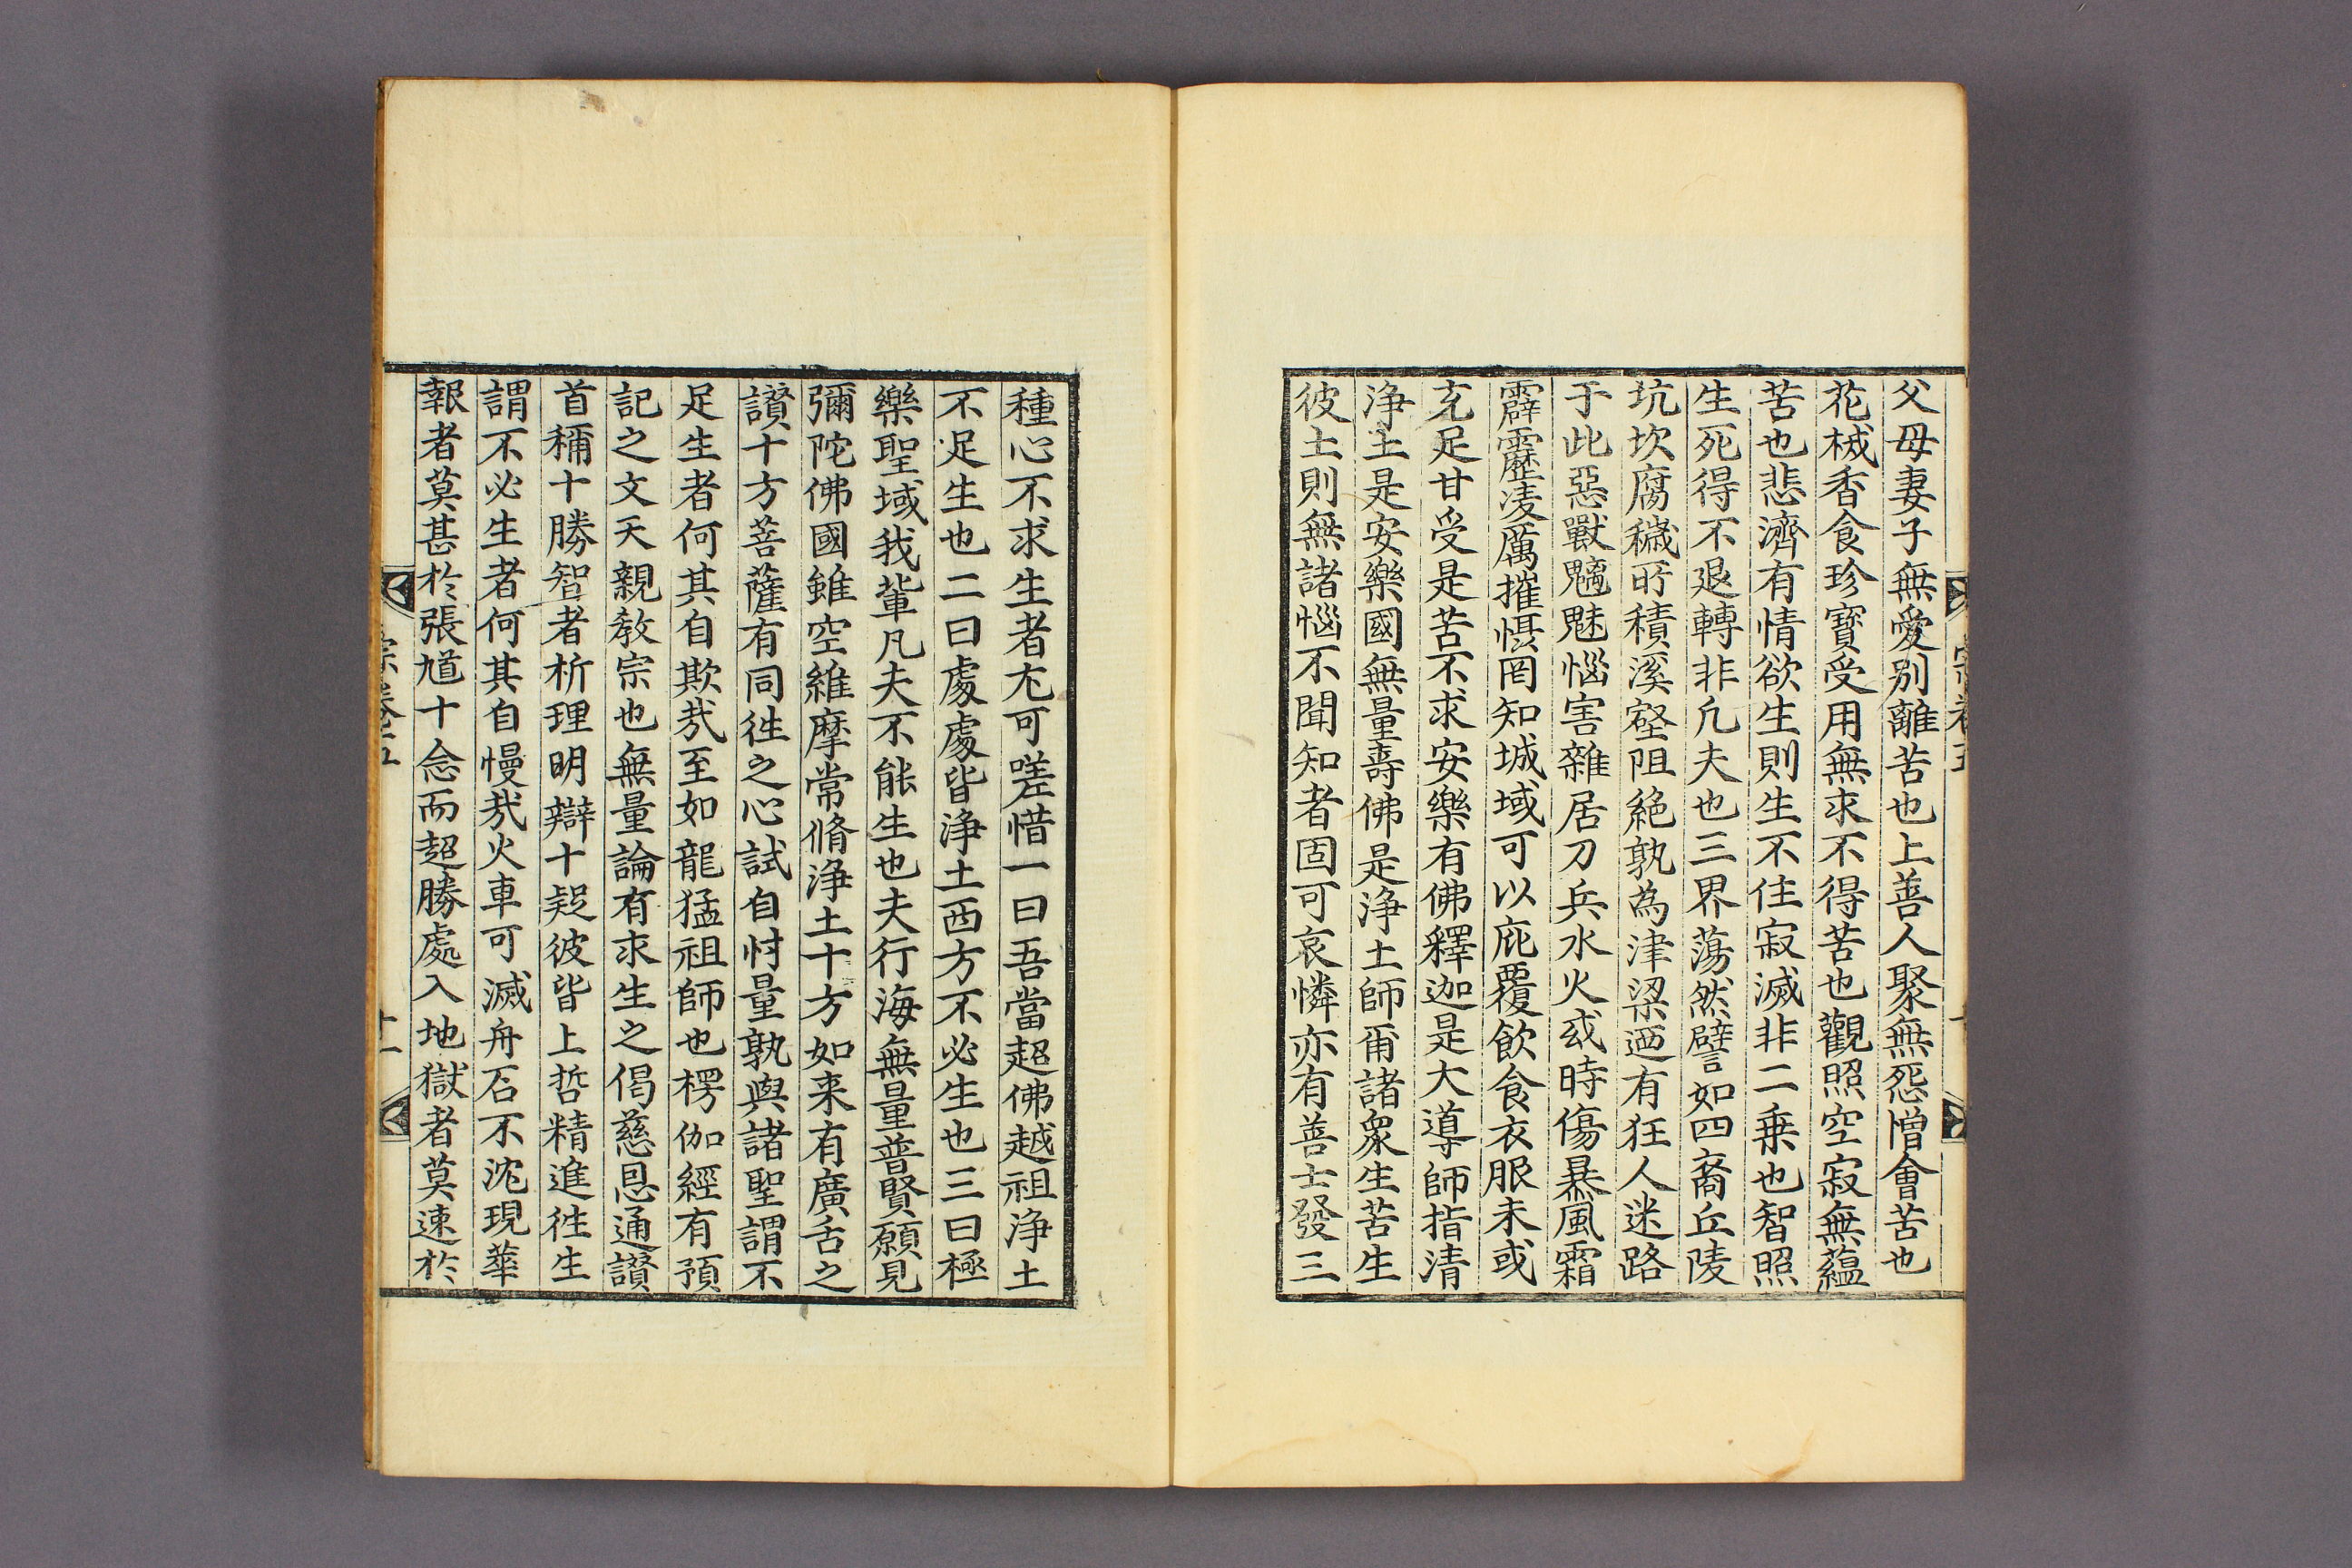 父母妻子無愛別離苦也上善人聚無怨憎會苦也
花椷香食珍寶受用無求不得苦也觀照空寂無蘊
苦也悲濟有情欲生則生不住寂滅非二乗也智照
生死得不退轉非凢夫也三界蕩然譬如四裔丘陵
坑坎腐穢所積溪壑阻絶孰為津梁迺有狂人迷路
于此惡獸魑魅惱害雜居刀兵水火或時傷暴風霜
霹靂凌厲摧愖罔知城域可以庇覆飲食衣服未或
充足甘受是苦不求安樂有佛釋迦是大導師指清
浄土是安樂國無量壽佛是浄土師甭諸衆生苦生
彼土則無諸惱不聞知者固可哀憐亦有善士發三
種心不求生者尢可嗟惜一曰吾當超佛越祖浄土
不足生也二曰處處皆浄土西方不必生也三曰極
樂聖域我輩凡夫不能生也夫行海無量普賢願見
彌陀佛國雖空維摩常脩浄土十方如来有廣舌之
讃十方菩薩有同徃之心試自忖量孰與諸聖謂不
足生者何其自欺㢤至如龍猛祖師也楞伽經有預
記之文天親敎宗也無量論有求生之偈慈恩通讃
首稱十勝智者析理明辯十疑彼皆上哲精進徃生
謂不必生者何其自慢㢤火車可滅舟石不沈現華
報者莫甚於張馗十念而超勝處入地獄者莫速於
宗卷五
十一